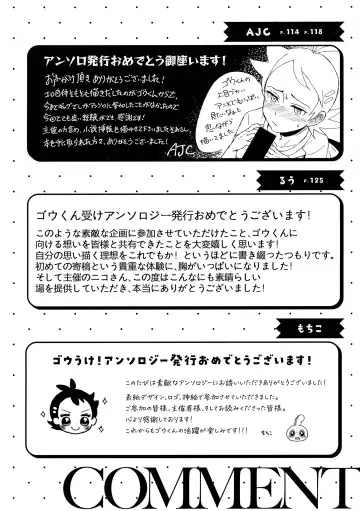 AJC P.114 P.118
アンソロ発行おめでとう御座います!
お声がけ頂きありがとうございました!
今回とても良い経験ができ、感謝です!
主催の方含め、小説挿絵も描かせて下さいましたるぅさん、
本を手に取られた方々、ありがとうございました!
AJC
ゴウくんの
上目づかい
アニメでもいっぱい
見たいなぁと
思いながら
描いてました
るぅ P.125
ゴウくん受けアンソロジー発行おめでとうございます!
このような素敵な企画に参加させていただけたこと、ゴウくんに
向ける想いを皆様と共有できたことを大変嬉しく思います!
自分の思い描く理想をこれでもか! というほどに書き綴ったつもりです。
初めての寄稿という貴重な体験に、胸がいっぱいになりました!
そして主催のニコさん、この度はこんなにも素晴らしい
場を提供していただき、本当にありがとうございました!
もちこ
ゴウうけ!アンソロジー発行おめでとうございます!
このたびは素敵なアンソロジーにお誘いいただきありがとうございました!
表紙デザイン、ロゴ、挿絵で参加させていただきました。
ご参加の皆様、主催者様、そしてお読みくださった皆様、
心より感謝しております!
これからもゴウくんの活躍が楽しみです!!!
もちこ
COMMENT